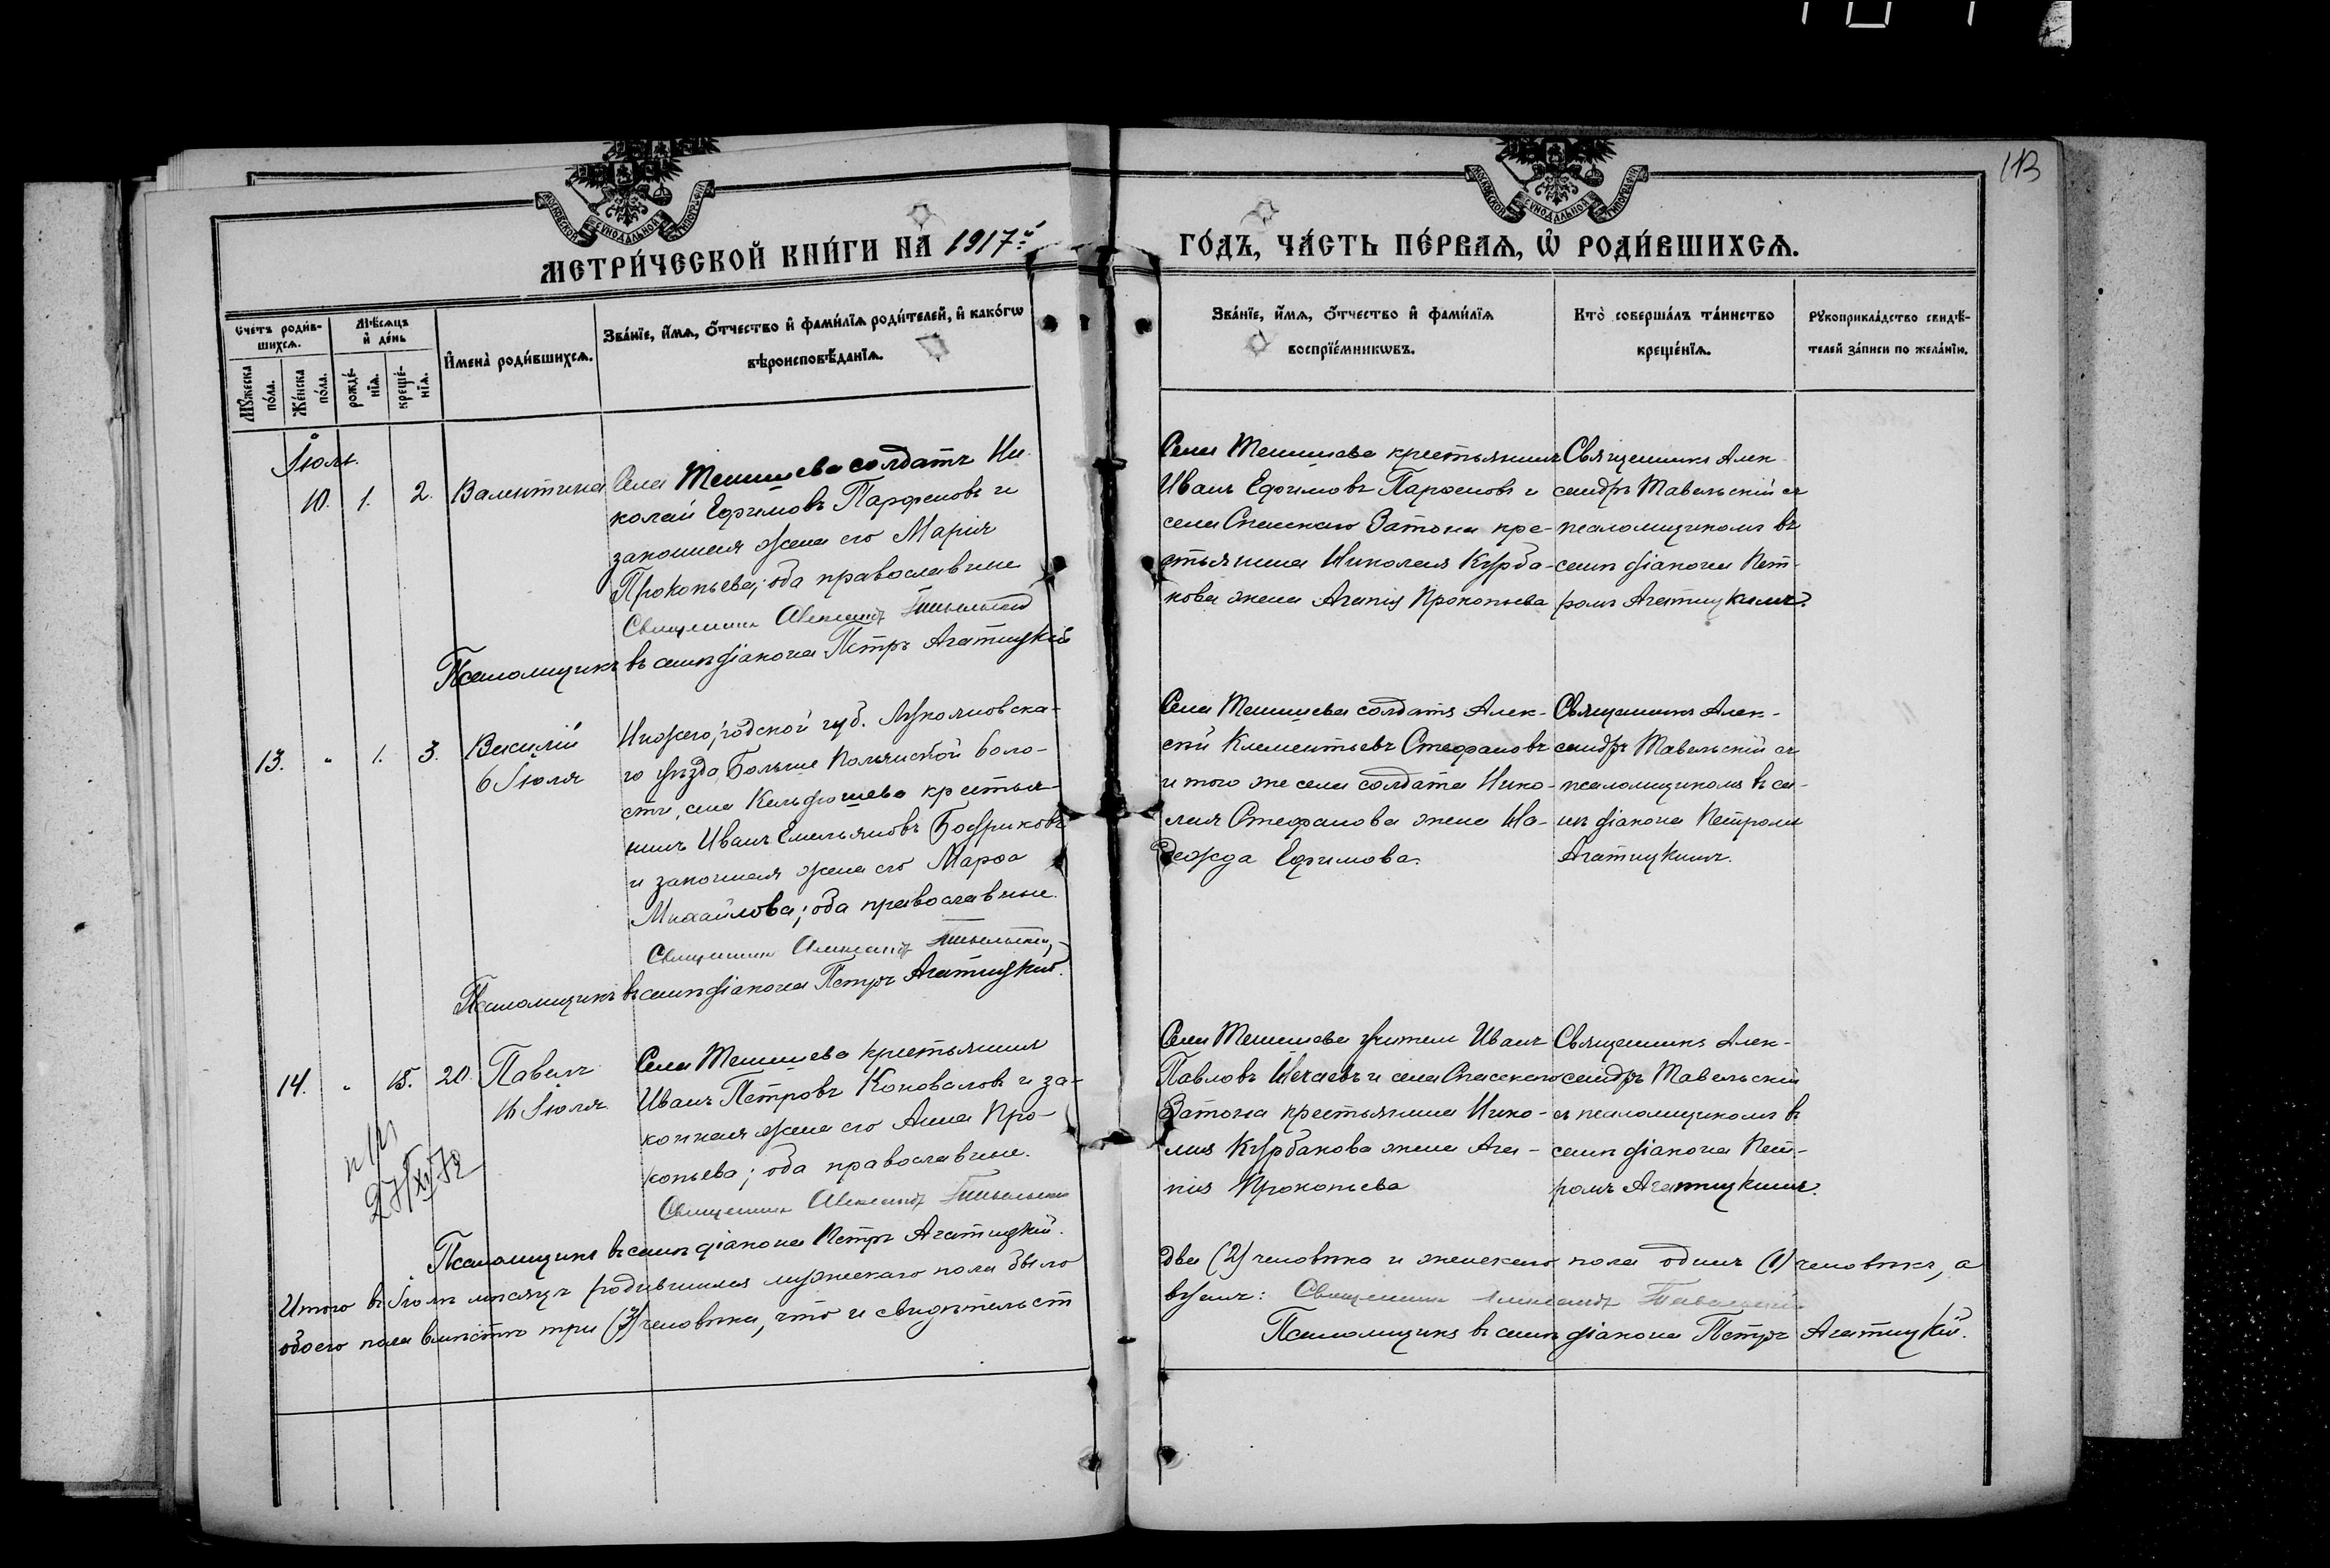 113
МЕТРИ́ЧЕСКОЙ КНИ́ГИ НА 1917й
ГО́ДЪ, ЧА́СТЬ ПЕ́РВАѦ, Ѡ҆ РОДИ́ВШИХСѦ.
Счетъ роди́в-
шихсѧ.
Мѣ́сѧцъ
и҆ де́нь
И҆мена̀ роди́вшихсѧ.
Зва́нїе, и҆́мѧ, ѻ҆́тчество и҆ фами́лїѧ роди́телей, и҆ како́гѡ
вѣроисповѣ́данїѧ.
Мꙋ́жеска
по́ла.
Же́нска
по́ла.
рожде́-
нїѧ.
креще́-
нїѧ.
Зва́нїе, и҆́мѧ, ѻ҆́тчество и҆ фами́лїѧ
воспрїе́мникѡвъ.
Кто̀ соверша́лъ та́инство
креще́нїѧ.
Рꙋкоприкла́дство свидѣ́-
телей за́писи по жела́нїю.
Іюль.
10. 1. 2. Валентина
Села Тенишева солдатъ Ни
колай Ефимовъ Парфеновъ и
законная жена его Марія
Прокопьева; оба православные
Священник Александр Тавельский
Псаломщикъ въ санѣ діакона Петръ Агатицкій
Села Тенишева крестьянинъ
Иванъ Ефимовъ Парфеновъ и
села Спасскаго Затона кре-
стьянина Николая Курба-
кова жена Агапія Прокопьева
Священникъ Алек
сандръ Тавельскій съ
псаломщикомъ въ
санѣ діакона Пет-
ромъ Агатицкимъ.
13. " 1. 3. Василій
6 Іюля
Нижегородской губ. Лукояновска-
го уѣзда, Больше Полянской воло-
сти, села Кельдюшево крестья-
нинъ Иванъ Емельяновъ Бодриковъ
и законная жена его Марфа
Михайлова; оба православные.
Священник Александр Тавельский
Псаломщикъ въ санѣ діакона Петръ Агатицкій.
Села Тенишева солдатъ Алек-
сѣй Клементьевъ Стефановъ
и того же села солдата Нико-
лая Стефанова жена На-
дежда Ефимова.
Священникъ Алек-
сандръ Тавельскій съ
псаломщикомъ въ са-
нѣ діакона Петромъ
Агатицкимъ.
14. " 15. 20. Павелъ
16 Іюля.
Села Тенишева крестьянинъ
Иванъ Петровъ Коновалов и за-
конная жена его Анна Про-
копьева; оба православные.
Священник Александр Тавельский
27/XI 72
Псаломщикъ въ санѣ діакона Петръ Агатицкій.
Села Тенишева учитель Иванъ
Павловъ Нечаевъ и села Спасскаго
Затона крестьянина Нико-
лая Курбакова жена Ага-
пія Прокопьева
Священникъ Алек-
сандръ Тавельскій
съ псаломщикомъ въ
санѣ діакона Пет-
ромъ Агатицкимъ.
Итого въ Іюлѣ мѣсяцѣ родившихся мужескаго пола было
обоего пола вмѣстѣ три (3) человѣка, что и свидѣтельст
два (2) человѣка и женскаго пола одинъ (1) человѣкъ, а
вуемъ: Священник Александр Тавельский
Псаломщикъ въ санѣ діакона Петръ Агатицкій.